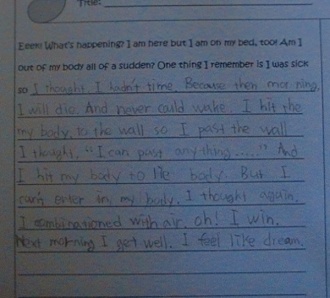 Title:
Eeek! What's happening? I am here but I am on my bed, too! Am I
out of my body all of a sudden? One thing I remember is I was sick
so I thought I hadn't time. Because then mor ning,
I will die. And never could wake. I hit the
my body, to the wall so I past the wall
I thought, "I can past any thing ....." And
I hit my body to lie body. But I
can't enter in my body. I thought again.
I combinationed with air. oh! I win.
Next morning I get well. I feel like dream.